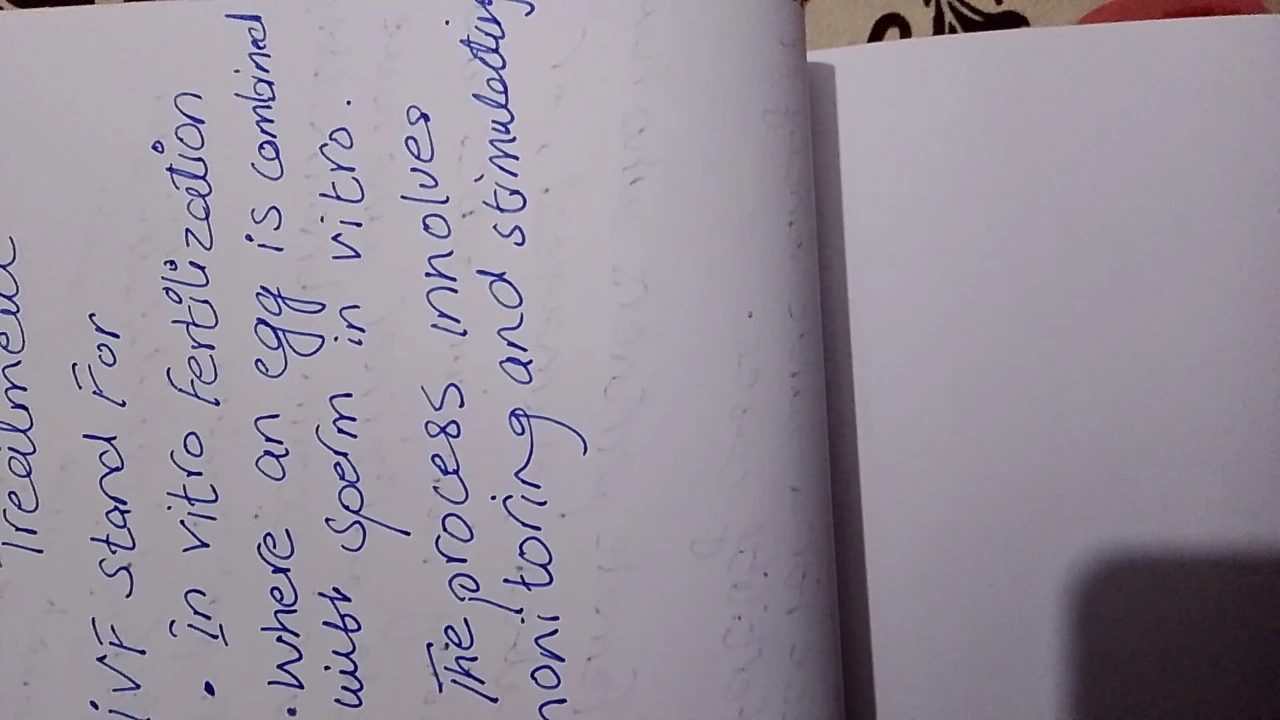 Treatment
iVF stand For
• In vitro Fertilization
• Where an egg is combined
with sperm in vitro.
The process involves
monitoring and stimulating